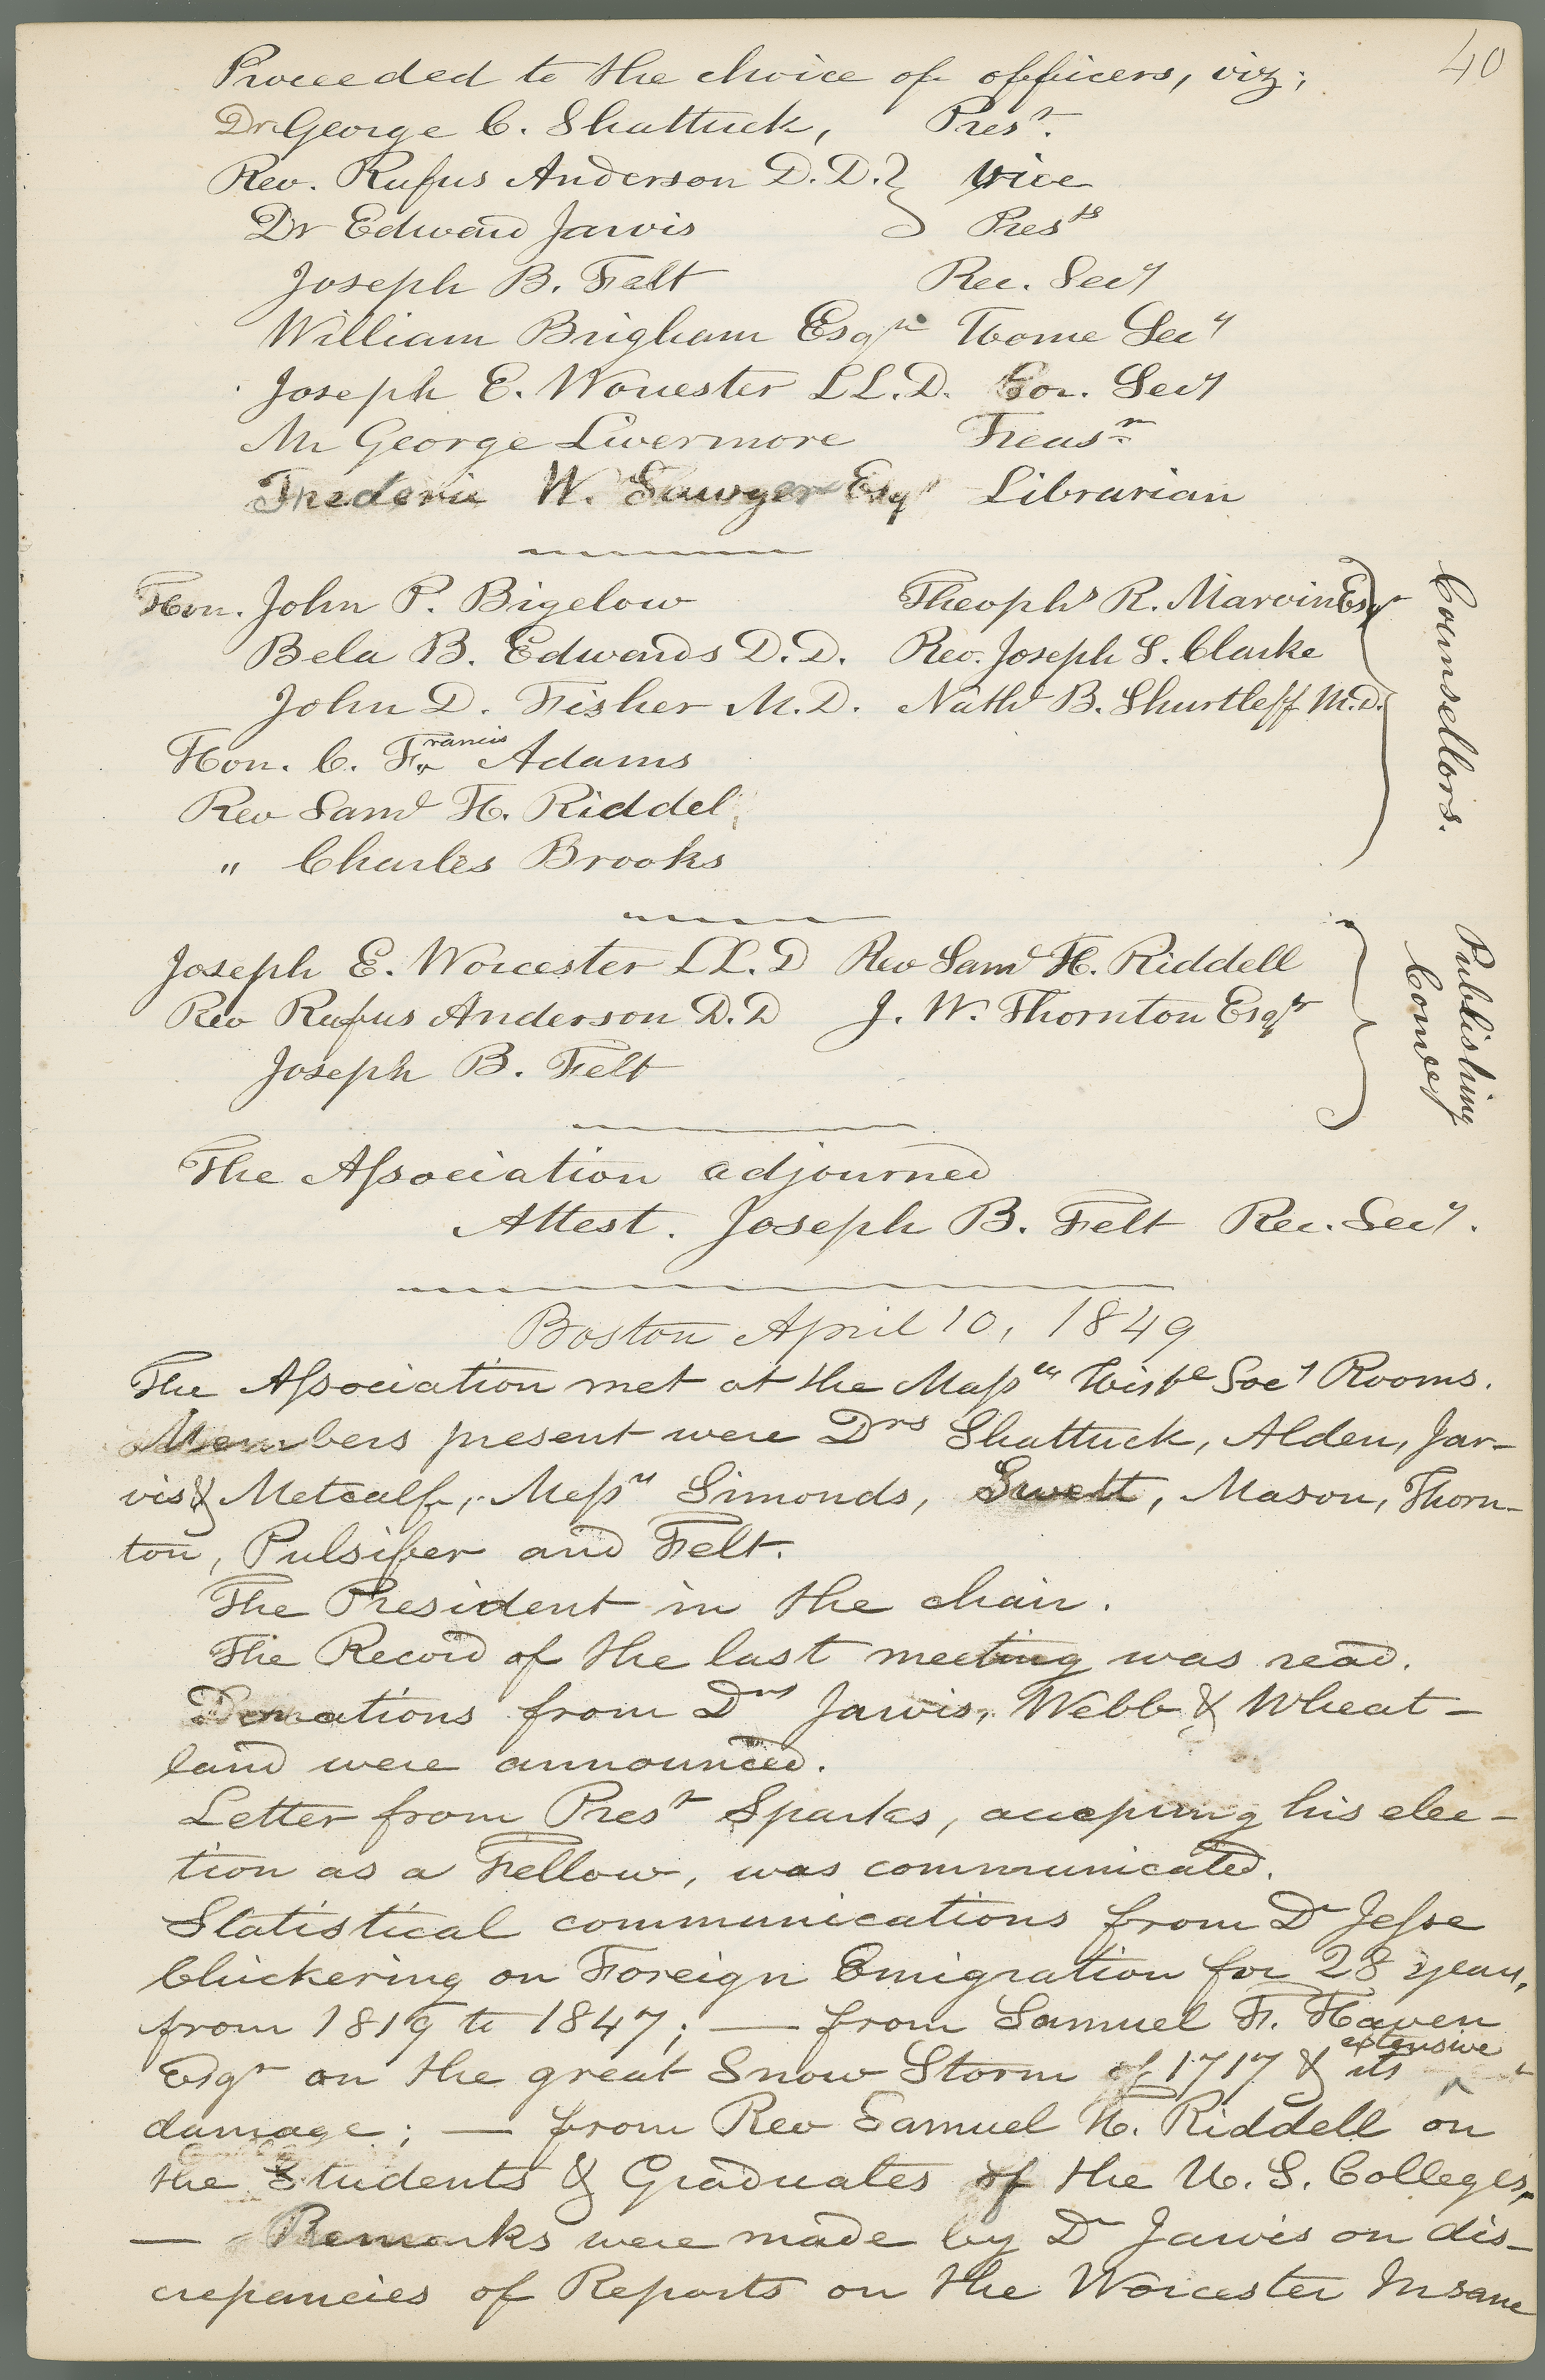 40
Proceeded to the choice of officers, viz;
Dr George C. Shattuck, Prest.
Rev. Rufus Anderson D.D. } Vice
Dr Edward Jarvis } Prests
Joseph B. Felt Rec. Secy
William Brigham Esqr Home Secy
Joseph E. Worcester LL.D. Cor. Secy
Mr George Livermore Treasr
Frederic W. Sawyer Esqr Librarian
Hon. John P. Bigelow Theophs R. Marvin Esqr
Bela B. Edwards D.D. Rev. Joseph S. Clarke
John D. Fisher M.D. Nathl B. Shurtleff M.D.
Hon. C. Francis Adams
Rev Saml H. Riddel
" Charles Brooks
Counsellors.
Joseph E. Worcester LL.D Rev Saml H. Riddell
Rev Rufus Anderson D.D J. W. Thornton Esqr
Joseph B. Felt
Publishing
Comee
The Association adjourned
Attest. Joseph B. Felt Rec. Secy.
Boston April 10, 1849
The Association met at the Massts Histl Socy Rooms.
Members present were Drs Shattuck, Alden, Jar-
vis & Metcalf, Messrs Simonds, Swett, Mason, Thorn-
ton, Pulsifer and Felt.
The President in the chair.
The Record of the last meeting was read.
Donations from Drs Jarvis, Webb & Wheat-
land were announced.
Letter from Prest Sparks, accepting his elec-
tion as a Fellow, was communicated.
Statistical communications from Dr Jesse
Chickering on Foreign Emigration for 28 years,
from 1819 to 1847; — from Samuel F. Haven
Esqr on the great Snow Storm of 1717 & its extensive
damage; — from Rev Samuel H. Riddell on
the Students & Graduates of the U. S. Colleges,
— Remarks were made by Dr Jarvis on dis-
crepancies of Reports on the Worcester Insane